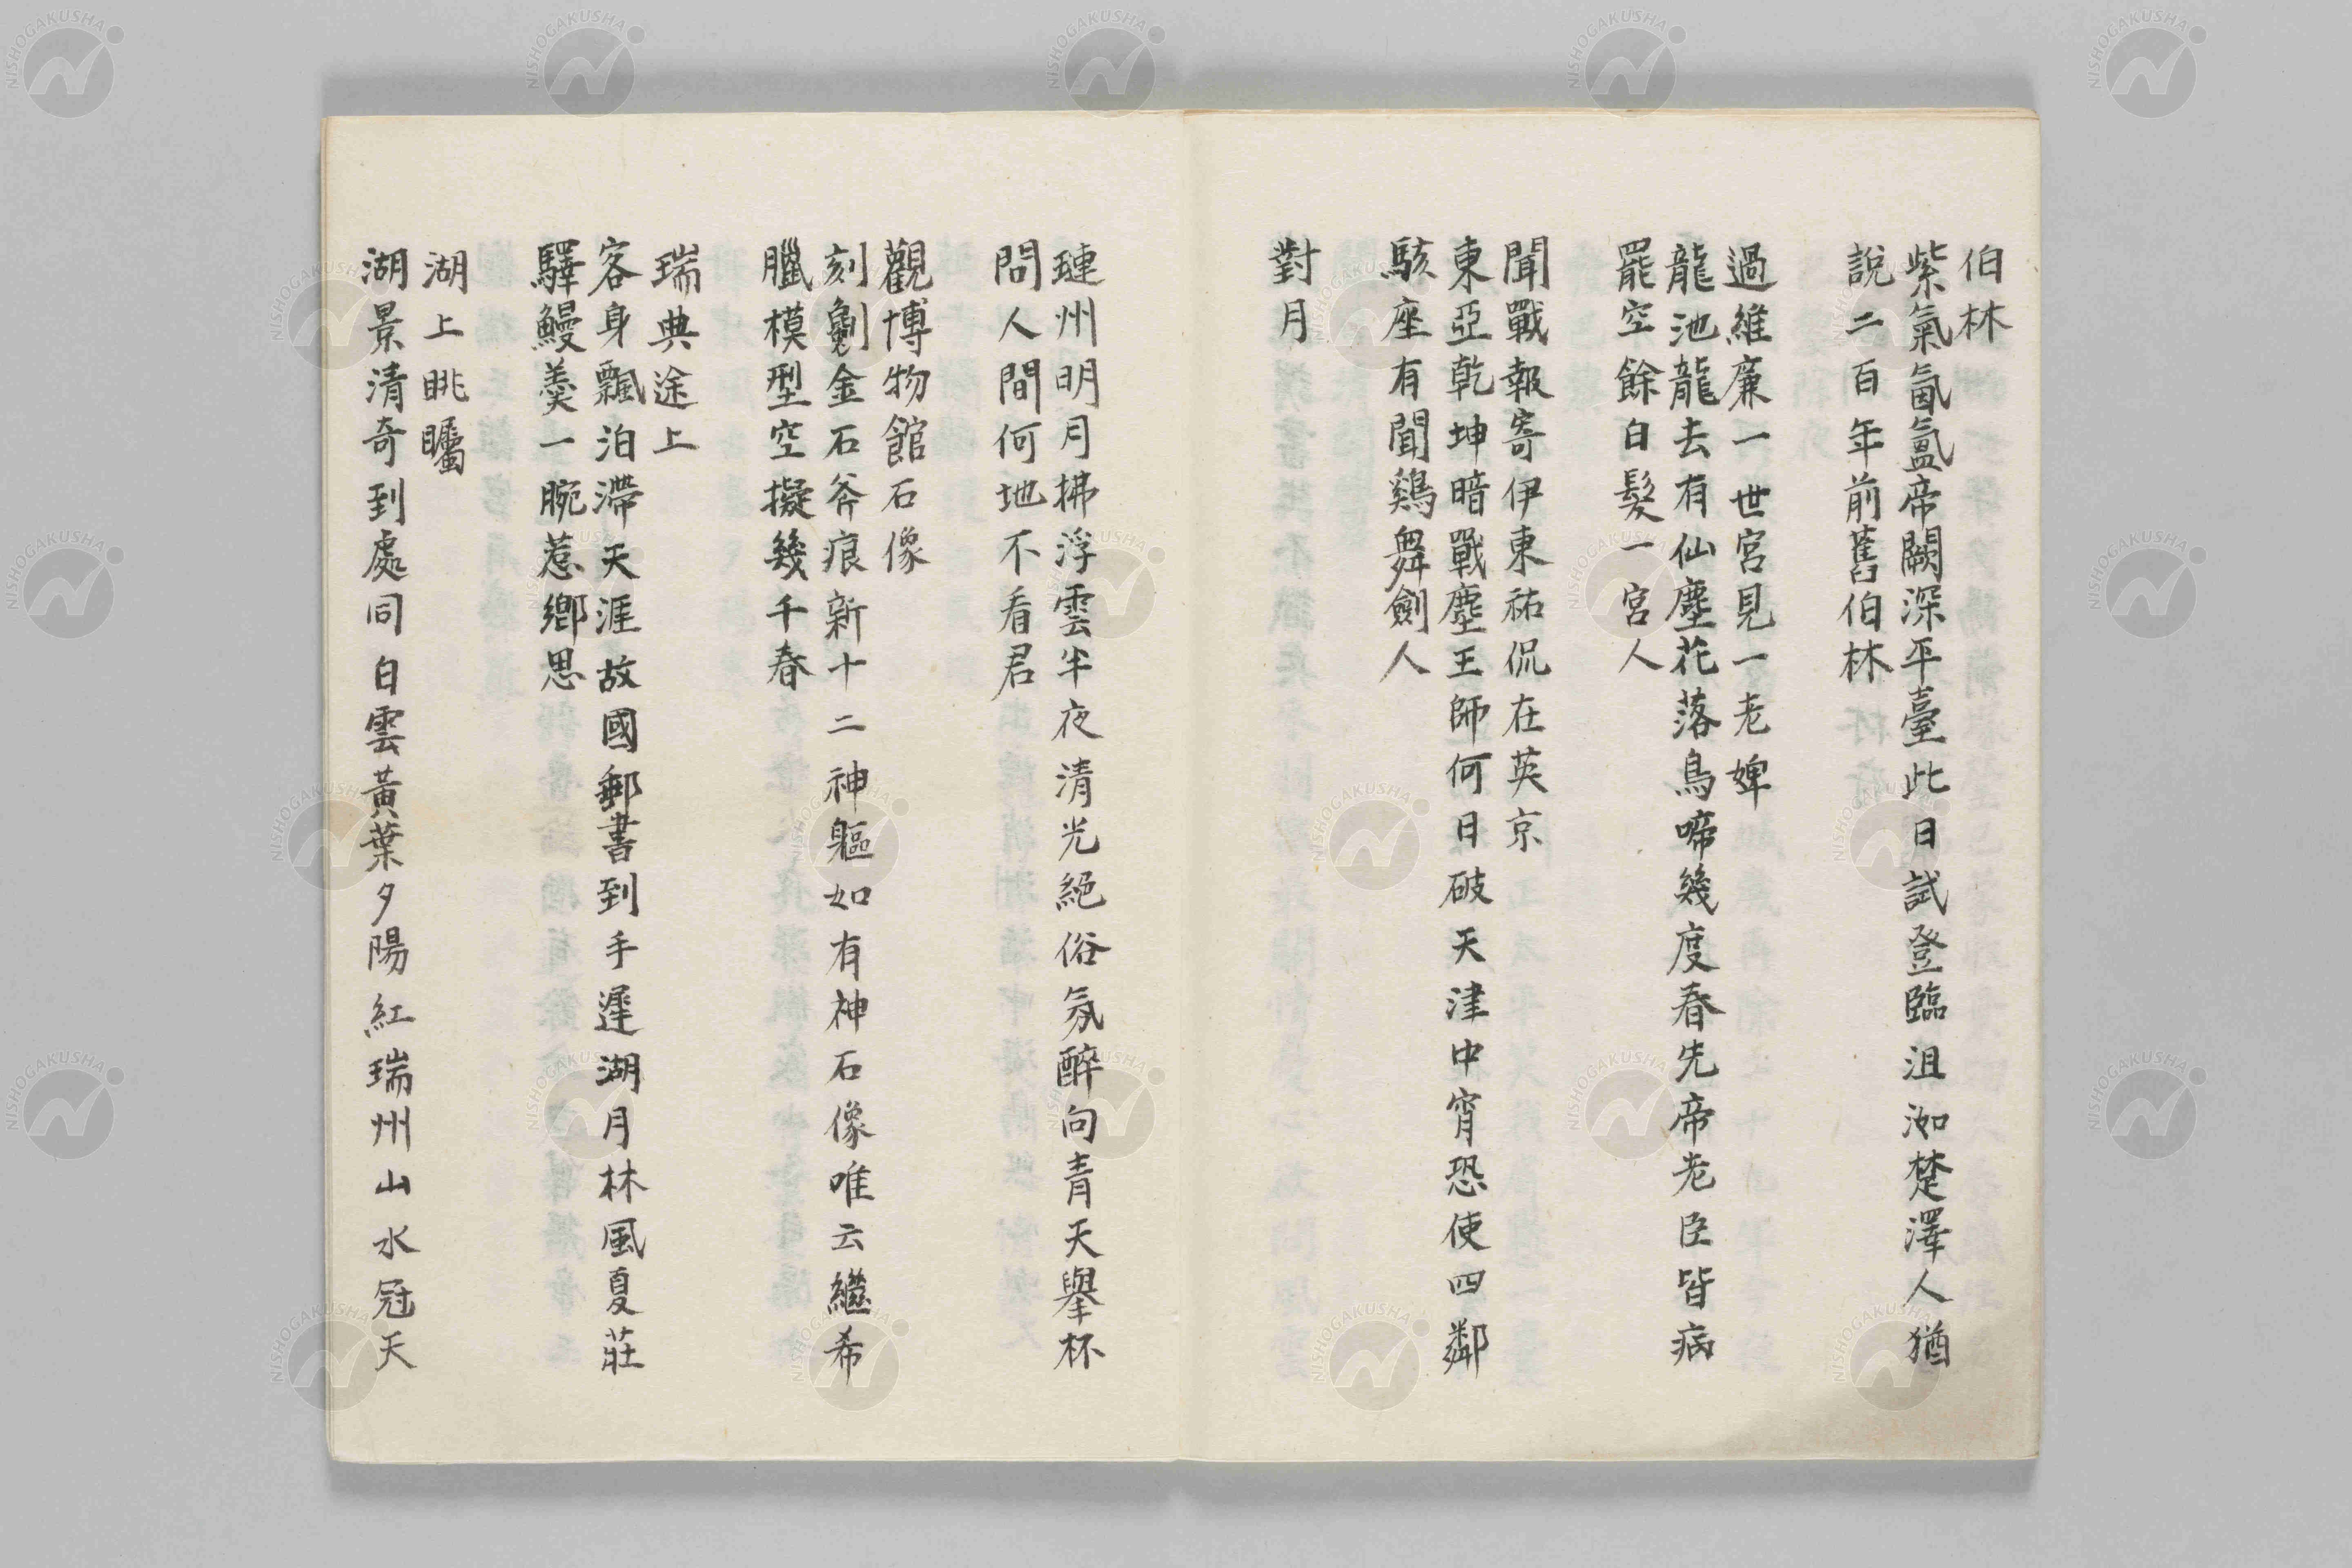 伯林
紫氣氤氳帝闕深平臺此日試登臨沮洳楚澤人猶
說二百年前舊伯林
過維廉一世宮見一老婢
龍池龍去有仙塵花落鳥啼幾度春先帝老臣皆病
罷空餘白髮一宮人
聞戰報寄伊東祐侃在英京
東亞乾坤暗戰塵王師何日破天津中宵恐使四鄰
駭座有聞鷄舞劍人
對月
璉州明月拂浮雲半夜清光絕俗氛醉向青天舉杯
問人間何地不看君
觀博物館石像
刻劖金石斧痕新十二神軀如有神石像唯云繼希
臘模型空擬幾千春
瑞典途上
客身飄泊滯天涯故國郵書到手遲湖月林風夏莊
驛鰻羹一腕惹鄉思
湖上眺矚
湖景清奇到處同白雲黃葉夕陽紅瑞州山水冠天
NISHOGAKUSHA